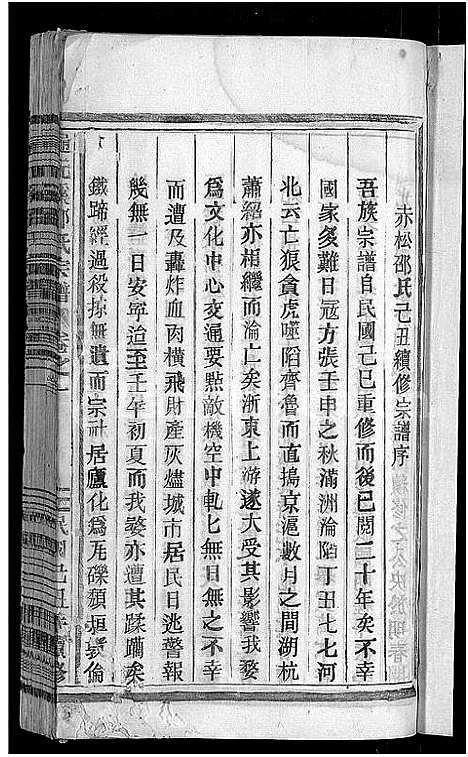 赤松邵氏己丑續修宗譜序
吾族宗譜自民國己巳重修而後已閱二十年矣不幸
國家多難日寇方張壬申之秋滿洲淪陷丁丑七七河
北云亡狼貪虎噬陷齊魯而直搗京滬數月之間湖杭
蕭紹亦相繼而淪亡矣浙東上游遂大受其影響我婺
爲文化中心交通要點敵機空中軋匕無日無之不幸
而遭及轟炸血肉橫飛財產灰燼城市居民日逃警報
幾無一日安寧迨至壬午初夏而我婺亦遭其蹂躪矣
鐵蹄經過殺掠無遺而宗社居廬化爲瓦礫頹垣
邵氏宗譜
民國己丑
續修